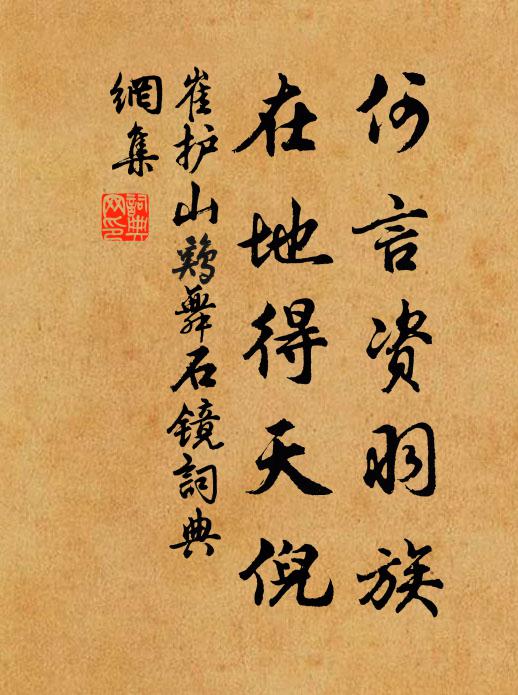 何言资羽族
在地得天倪
崔护山鸡舞石镜词典
网集
词典网印